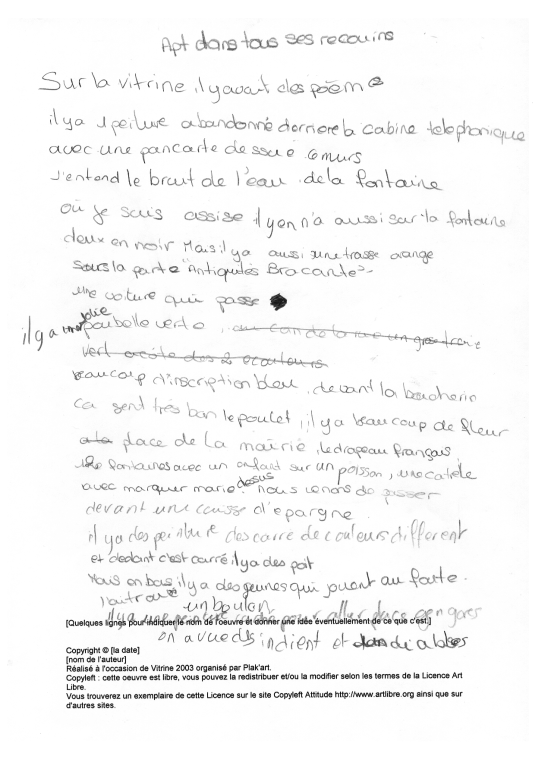 Apt dans tous ses recouins
Sur la vitrine il yavait des poème
il y a 1 peiture abandonné derriere la cabine telephonique
avec une pancarte dessue 6 murs
J'entend le bruit de l'eau de la fontaine
où je suis assise il yen n'a aussi sur la fontaine
deux en noir Mais il y a aussi une trasse orange
Sous la parte "Antiquités Bracante"
une voiture qui passe
il y a une jolie poubelle verte
vert a coté des 2 ecouteurs
beaucoup d'inscription bleu devant la boucherie
Ca sent très bon le poulet, il y a beaucoup de fleur
a la place de La mairie, le drapeau français,
fontaines avec un enfant sur un poisson, une
avec marquer marie dessus nous venons de passer
devant une caisse d'epargne
il y a des peinture des carre de couleurs different
et dedant c'est carré il y a des
en bas, il y a des jeunes qui jouent au foote.
un boulon
il y a une pour aller
[Quelques lignes pour indiquer le nom de l'oeuvre et donner une idée éventuellement de ce que c'est.]
on a vue des indient et diables
Copyright © [la date]
[nom de l'auteur]
Réalisé à l'occasion de Vitrine 2003 organisé par Plak'art.
Copyleft : cette oeuvre est libre, vous pouvez la redistribuer et/ou la modifier selon les termes de la Licence Art
Libre.
Vous trouverez un exemplaire de cette Licence sur le site Copyleft Attitude http://www.artlibre.org ainsi que sur
d'autres sites.